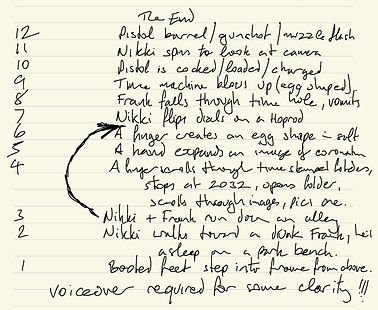 The End
12 Pistol barrel/gunshot/muzzle flash
11 Nikki spins to look at camera
10 Pistol is cocked/loaded/charged
9 Time machine blows up (egg shaped)
8 Frank falls through time hole, vomits
7 Nikki flips dials on a Hoprod
6 A finger creates an egg shape in soft
5 A hand expands an image of coronation
4 A finger scrolls through time stamped folders,
stops at 2032, opens folder,
scrolls through images, pics one.
3 Nikki + Frank run down an alley
2 Nikki walks toward a drunk Frank, he's
asleep on a park bench.
1 Booted feet step into frame from above.
Voiceover required for some clarity !!!